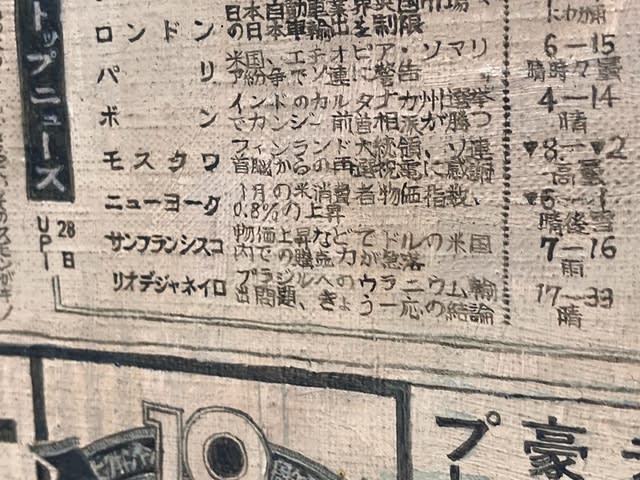 トップニュース
28日
UPI
ロンドン
日本の自動車業界を
日本車輸出制限
6—15
晴時々曇
パリ
米国、エチオピア・ソマリ
ア紛争でソ連に警告
4—14
晴
ボン
インドのカルナタカ州選挙
でガンジー前首相派が勝つ
▼8—▼2
高曇
モスクワ
フィンランド大統領、ソ連
首脳からの再選祝電に感謝
▼6—1
晴後雪
ニューヨーク
1月の米消費者物価指数、
0.8%の上昇
7—16
雨
サンフランシスコ
物価上昇などでドルの米国
内での購売力が急落
17—33
晴
リオデジャネイロ
ブラジルへのウラニウム輸
出問題、きょう一応の結論
10
豪
プー